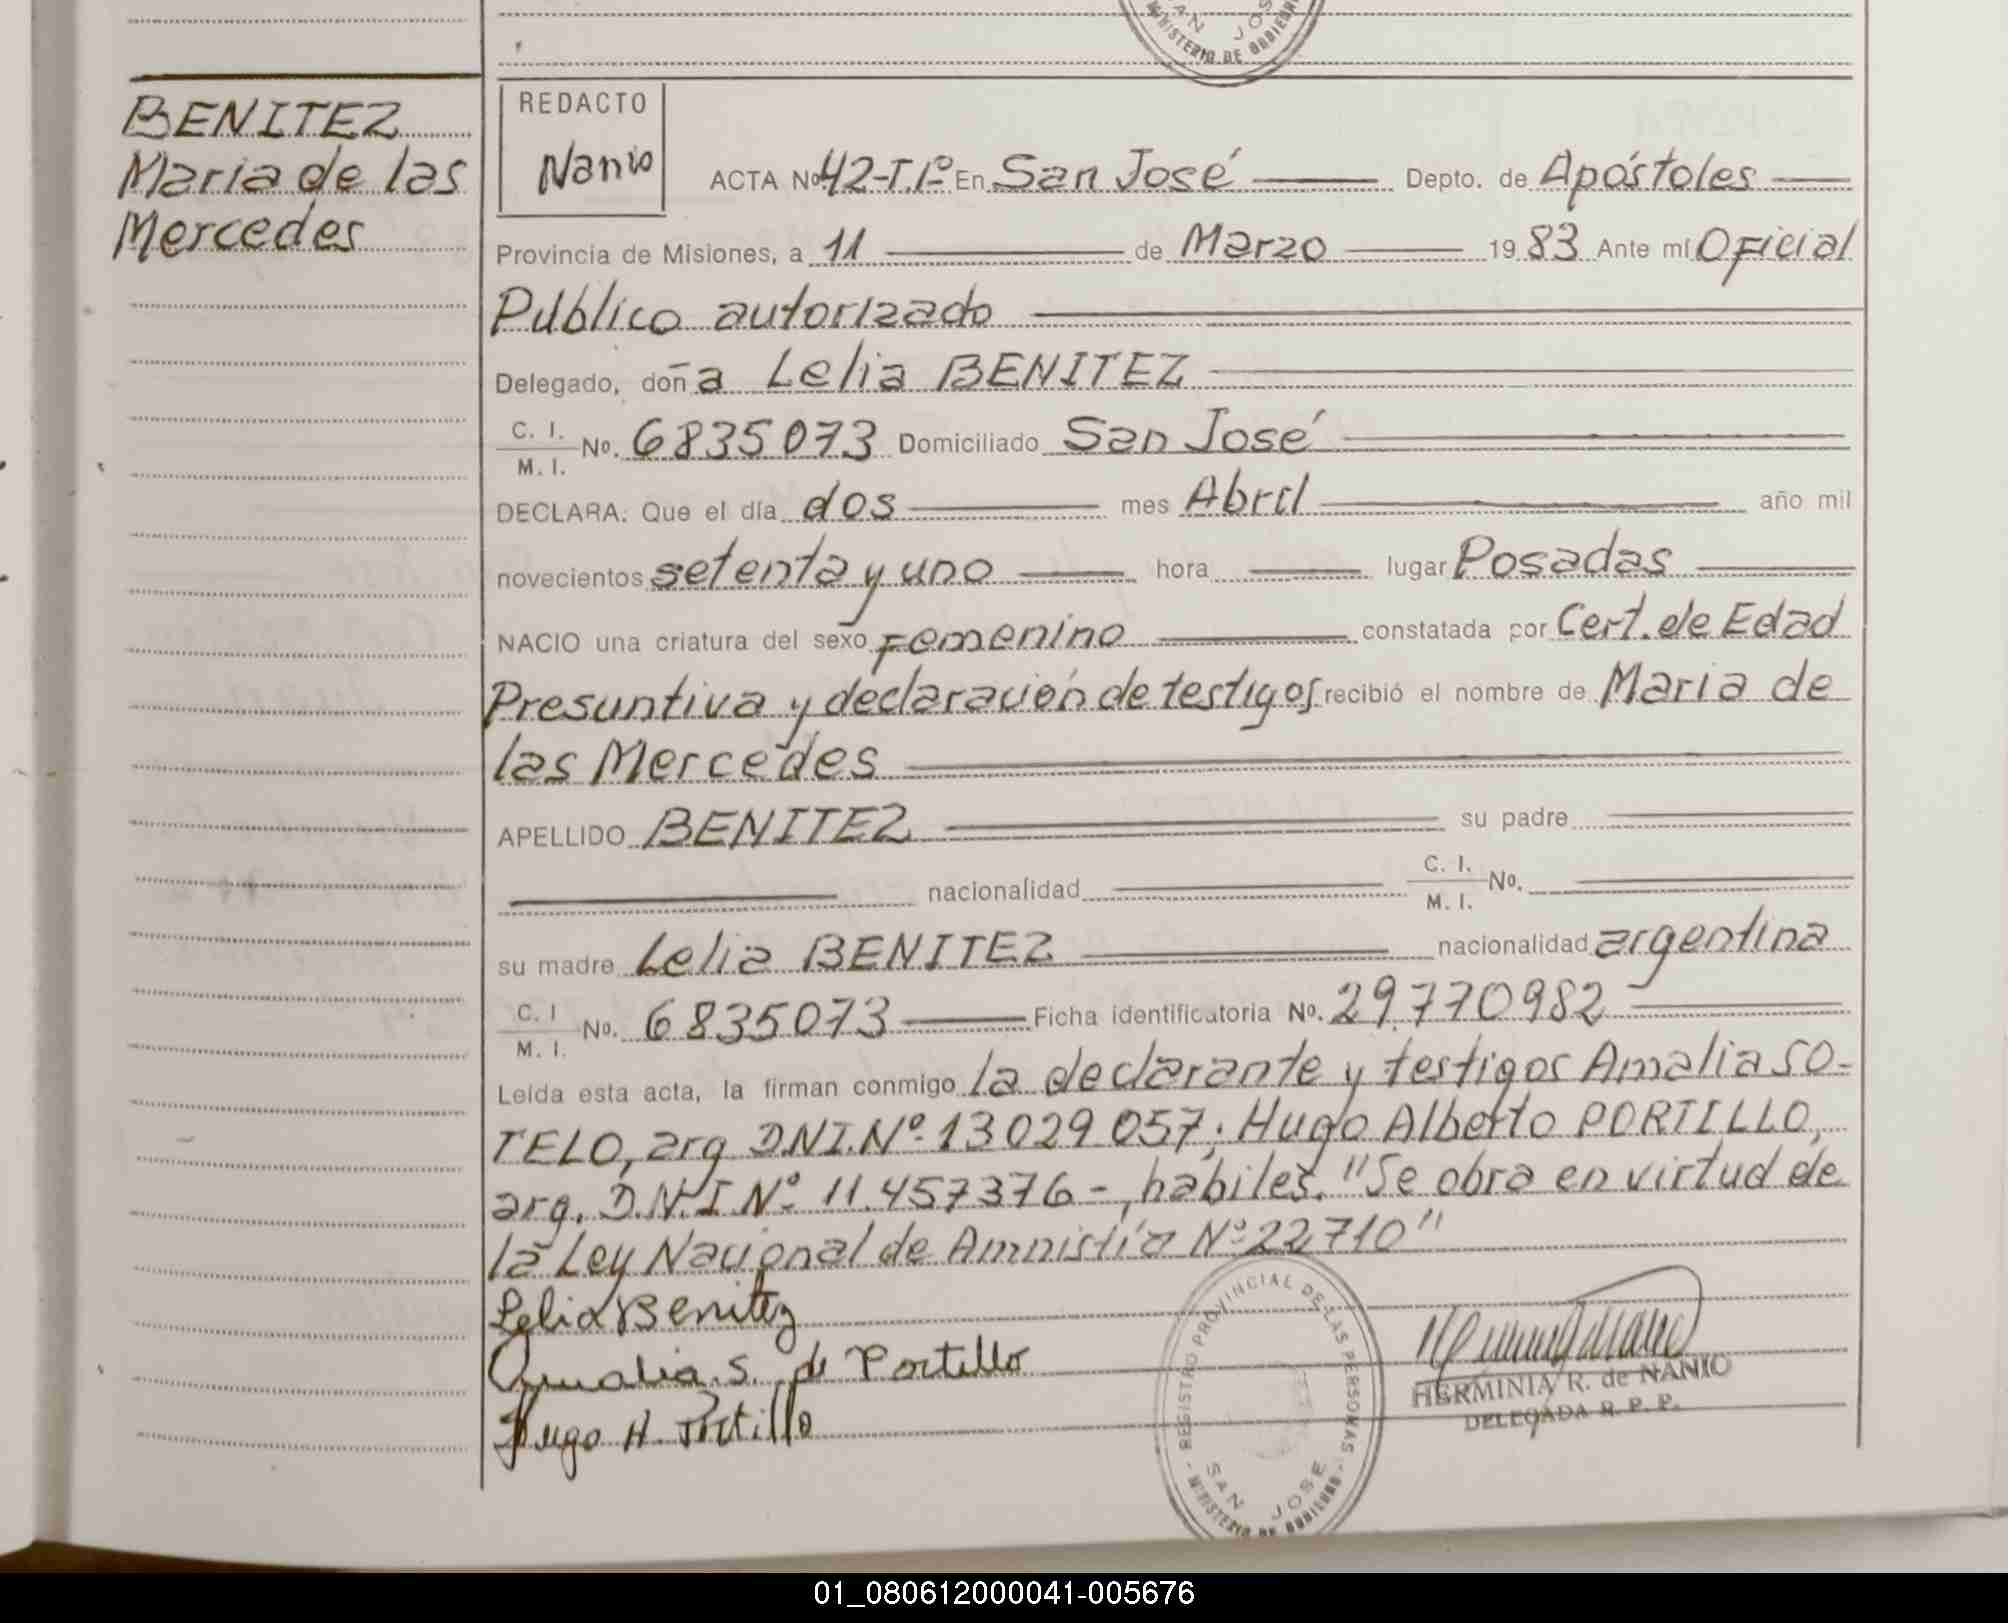 SAN JOSE
MINISTERIO DE GOBIERNO
BENITEZ
Maria de las
Mercedes
REDACTO
Nanio
ACTA Nº 42-T.Iº En San José Depto. de Apóstoles
Provincia de Misiones, a 11 de Marzo 1983 Ante mí Oficial
Público autorizado
Delegado, doña Lelia BENITEZ
C. I.
M. I. No. 6835073 Domiciliado San José
DECLARA: Que el día dos mes Abril año mil
novecientos setenta y uno hora lugar Posadas
NACIO una criatura del sexo Femenino constatada por Cert. de Edad
Presuntiva y declaración de testigos recibió el nombre de Maria de
las Mercedes
APELLIDO BENITEZ su padre
nacionalidad C. I. M. I. No.
su madre Lelia BENITEZ nacionalidad argentina
C. I
M. I. No. 6835073 Ficha identificatoria No. 29.770982
Leída esta acta, la firman conmigo la declarante y testigos Amalia SO-
TELO, arg. D.N.I. Nº 13029057; Hugo Alberto PORTILLO,
arg. D.N.I Nº 11.457376-, habiles. "Se obra en virtud de
la Ley Nacional de Amnistía Nº 22.710"
Lelia Benitez
Amalia. S. de Portillo
Hugo A. Portillo
REGISTRO PROVINCIAL DE LAS PERSONAS
SAN JOSE
MINISTERIO DE GOBIERNO
HERMINIA R. de NANIO
DELEGADA R. P. P.
01_080612000041-005676